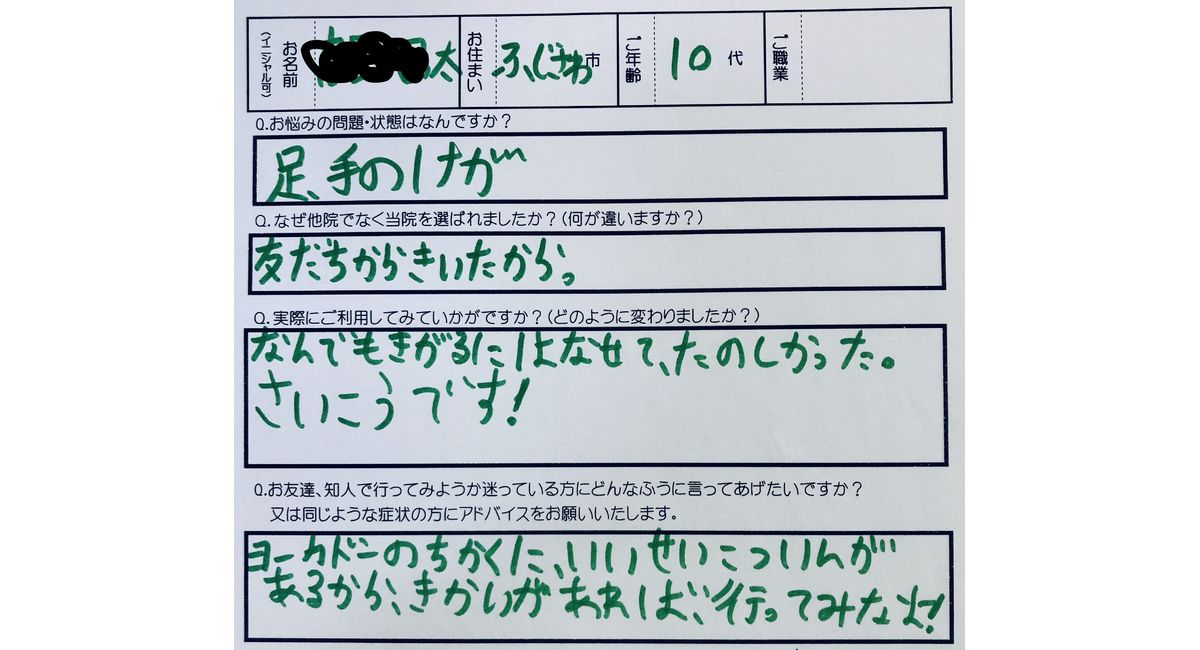 お名前 (イニシャル可) 太 お住まい ふじさわ 市 ご年齢 10 代 ご職業
Q.お悩みの問題・状態はなんですか？
足、手のけが
Q.なぜ他院でなく当院を選ばれましたか？(何が違いますか？)
友だちからきいたから。
Q.実際にご利用してみていかがですか？(どのように変わりましたか？)
なんでもきがるにはなせて、たのしかった。
さいこうです!
Q.お友達、知人で行ってみようか迷っている方にどんなふうに言ってあげたいですか？
又は同じような症状の方にアドバイスをお願いいたします。
ヨーカドーのちかくに、いいせいこついんが
あるから、きかいがあれば、行ってみなよ!